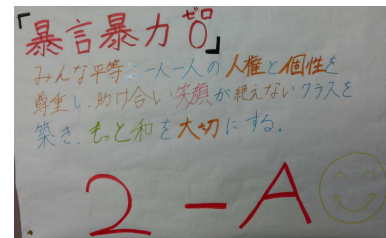 「暴言暴力0」
ゼロ
みんな平等に一人一人の人権と個性を
尊重し、助け合い笑顔が絶えないクラスを
築き、もっと和を大切にする。
2-A